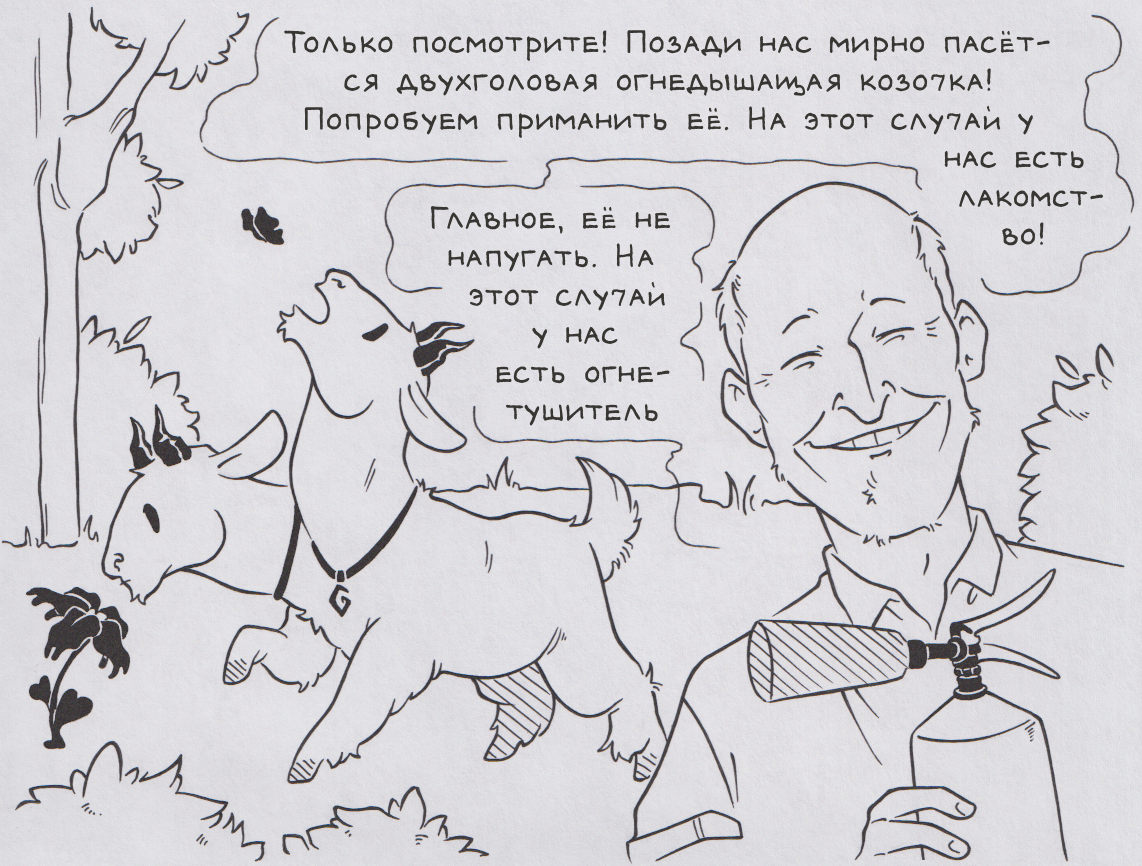 Только посмотрите! Позади нас мирно пасёт-
ся двухголовая огнедышащая козочка!
Попробуем приманить её. На этот случай у
нас есть
лакомст-
во!
Главное, её не
напугать. На
этот случай
у нас
есть огне-
тушитель
G